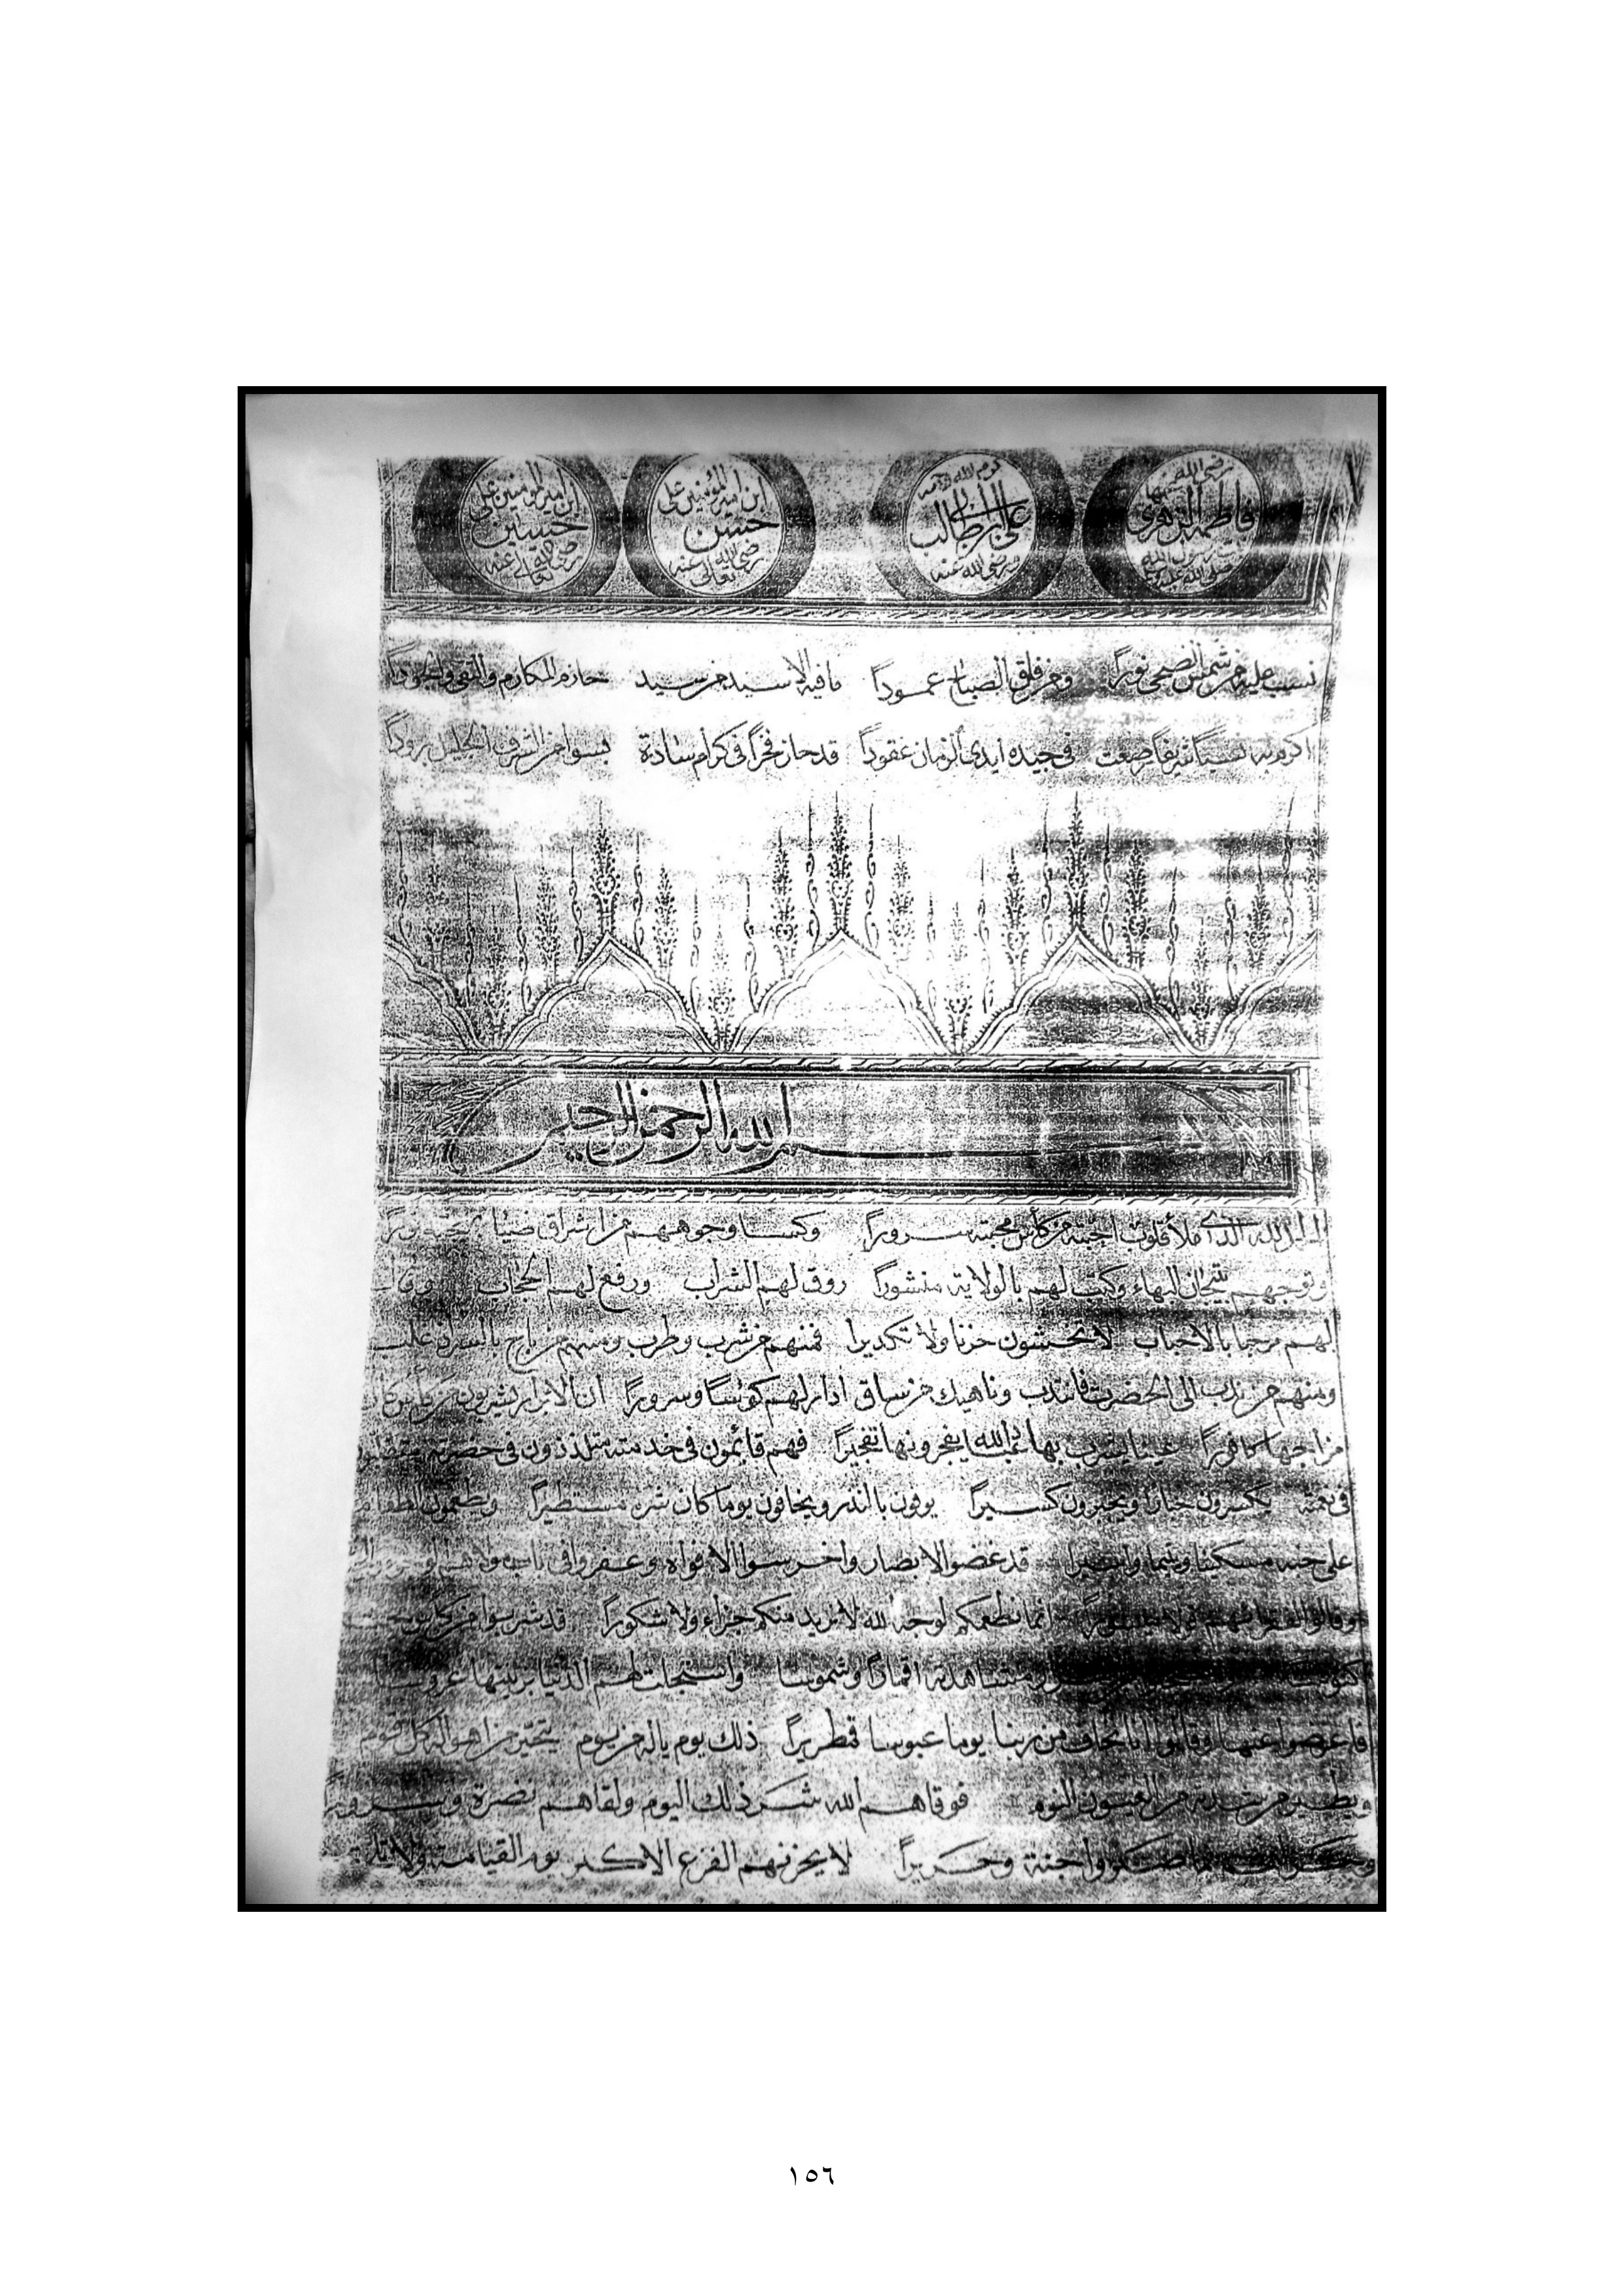 رضى الله عنها
فاطمة الزهرى
بنت رسول الله
صلى الله عليه وسلم
كرم الله وجهه
على ابن ابى طالب
رضى الله عنه
ابن امير المؤمنين على
حسن
رضى الله تعالى عنه
ابن امير المؤمنين على
حسين
رضى الله تعالى عنه
نسب عليه من شمس الضحى نوراً ومن فلق الصباح عموداً مافيه الا سيد من سيد حاز المكارم والتقى والجوداً
اكرم به نسباً شريفاً رصعت فى جيده ايدى الزمان عقوداً قد حاز فخراً فى كرام سادة لبسوا من الشرف الجليل بروداً
بسم الله الرحمن الرحيم
الحمد لله الذى ملأ قلوب احبته من كأس محبته سروراً وكسا وجوههم من اشراق ضياء
وتوجهم بتيجان البهاء وكتب لهم بالولاية منشوراً روق لهم الشراب ورفع لهم الحجاب وقال
لهم مرحبا بالاحباب لا تخشون حزنا ولا تكديرا فمنهم من شرب وطرب ومنهم من باح بالسر
ومنهم من ندب الى الحضرت فانتدب وناهيك من ساق ادار لهم كؤسا وسروراً ان الابرار يشربون من كأس كان
مزاجها كافوراً عينا يشرب بها عباد الله يفجرونها تفجيراً فهم قائمون فى خدمته متلذذون فى حضرته
فى نعمته ويجبرون كسيراً يوفون بالنذر ويخافون يوما كان شره مستطيراً ويطعمون الطعام
على حبه مسكينا ويتيما واسيرا قد غضوا الابصار واخرسوا الافواه وعفروا فى
وقالوا انما نطعمكم لوجه الله لا نريد منكم جزاء ولا شكوراً قد شربوا من
بمشاهدته اقماراً وشموسا واستجلت لهم الدنيا بزينتها عروسا
فاعرضوا عنها وقالوا انا نخاف من ربنا يوما عبوسا قمطريراً ذلك يوم ياله من يوم يتحير من اهواله كل قوم
ويطير من شدته من العيون النوم فوقاهم الله شر ذلك اليوم ولقاهم نضرة وسروراً
بما صبروا جنة وحريراً لا يحزنهم الفزع الاكبر يوم القيامة
١٥٦